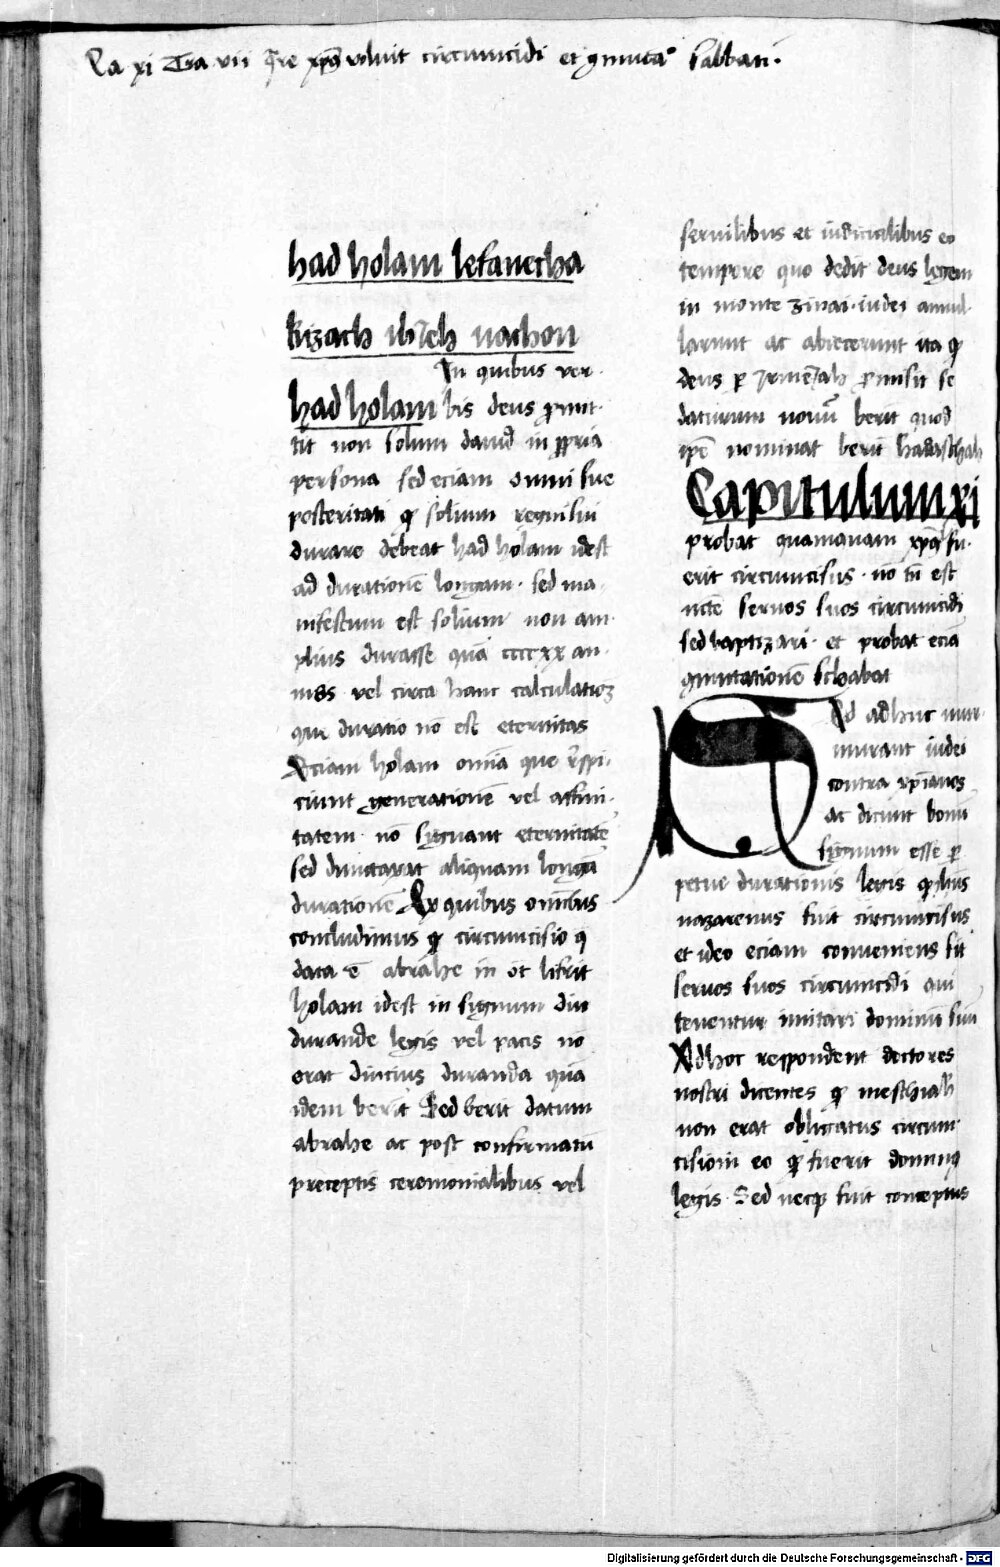 Ca xi Tra vii Qre xp̄s voluit circumcidi et ꝯmuta° sabbati·
had holam lefanecha
kizach ihieh nachon
In quibus ver-
had holam bis deus ꝓmit-
tit non solum dauid in ꝓpria
persona sed eciam omni sue
posteritati ꝙ solium regni sui
durare debeat had holam idest
ad durationē longam· sed ma-
nifestum est solium non am-
plius durasse quā ccccxx an-
nos vel circa hanc calculationē
que duratio nō est eternitas
Eciam holam omīa que respi-
ciunt generationē vel affini-
tatem nō signant eternitatē
sed dumtaxat aliquam longā
durationē Ex quibus omībus
concludimus ꝙ circumcisio q̄
data ē abrahe in ot lifrit
holam idest in signum diu
durande legis vel pacis nō
erat diucius duranda quā
idem berit Sed berit datum
abrahe ac post confirmatū
preceptis ceremonialibus vel
seruilibus et iudicialibus eo
tempore quo dedit deus legem
in monte zinai· iudei annul-
larunt ac abiecerunt ita ꝙ
deus ꝑ Jrmeiah ꝓmisit se
daturum nouū berit quod
ip̄e nominat berit hadaschah
Capitulum xi
probat quamquam xp̄s fu-
erit circumcisus· nō tn̄ est
nc̄te seruos suos circumcidi
sed baptizari· et probat eciā
ꝯmutationē schabat
Ed adhuc mur-
murant iudei
contra xp̄ianos
ac dicunt bonū
signum esse ꝑ
petue durationis legis ꝙ ihūs
nazarenus fuit circumcisus
et ideo eciam conueniens sit
seruos suos circumcidi qui
tenentur imitari dominū suū
Ad hoc respondent doctores
nostri dicentes ꝙ meschiah
non erat obligatus circum-
cisioni eo ꝙ fuerit dominus
legis· Sed neqꝫ fuit conceptus
Digitalisierung gefördert durch die Deutsche Forschungsgemeinschaft - DFG